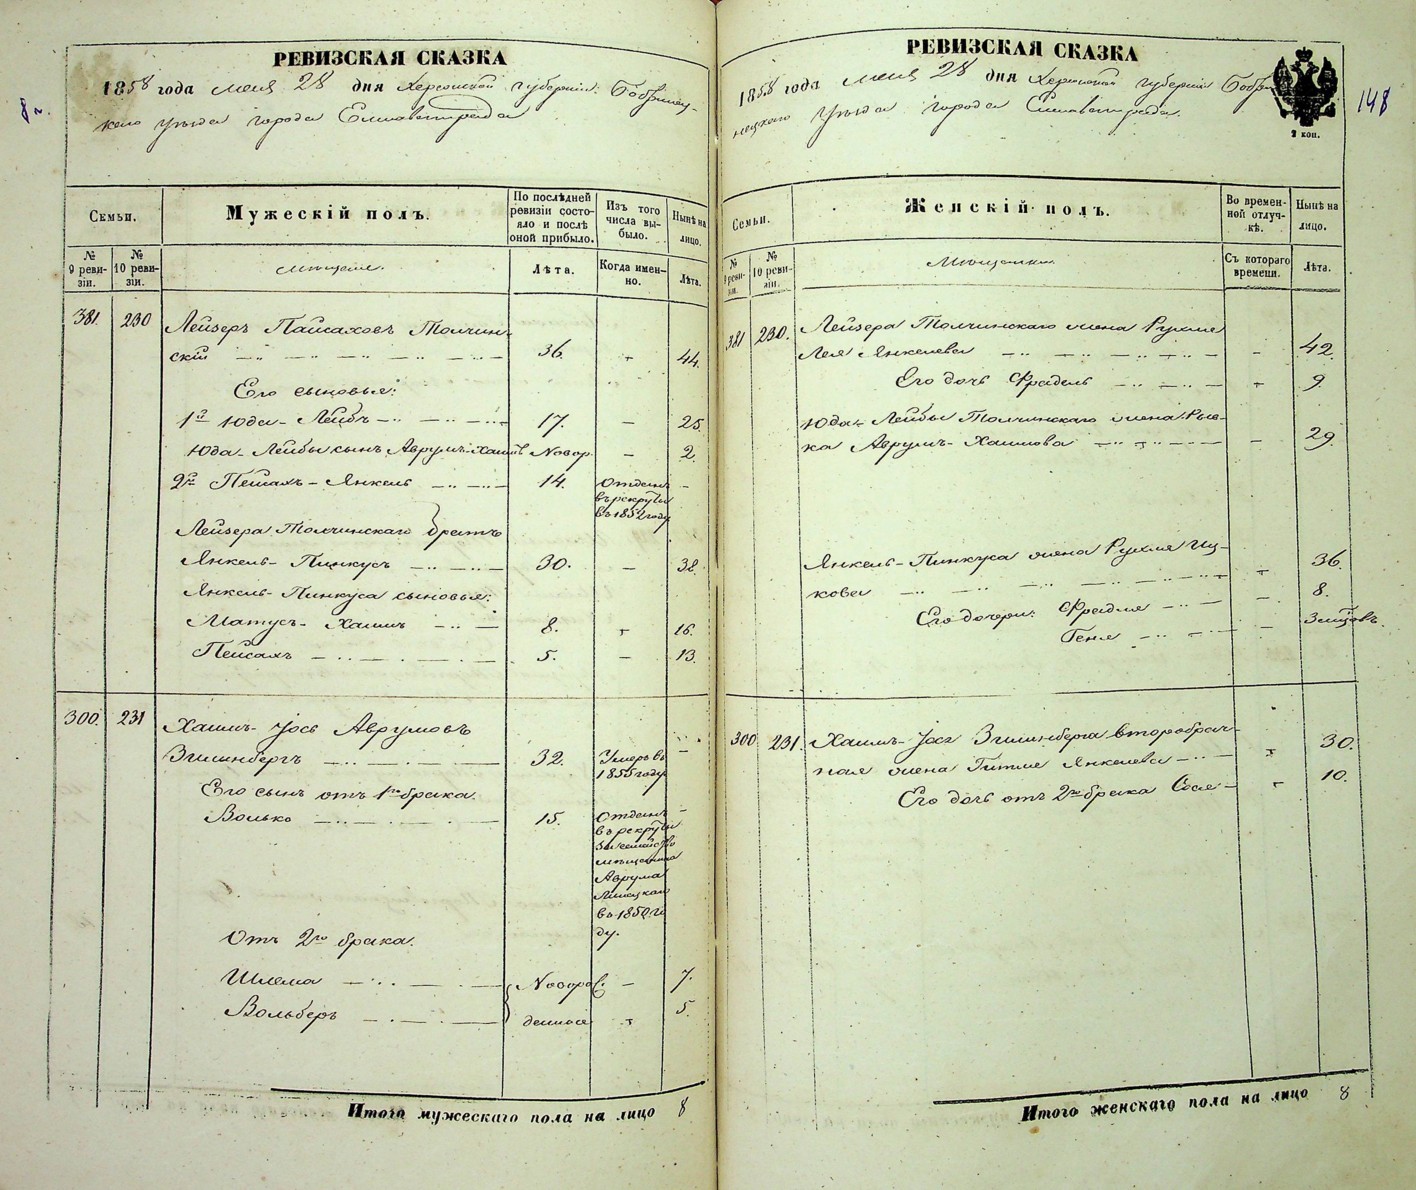 РЕВИЗСКАЯ СКАЗКА
1858 года мая 28 дня Херсонской губернии Бобринец-
каго уѣзда города Елисаветграда
8
Семьи.
Мужескій полъ.
По послѣдней ревизіи состо-
яло и послѣ оной прибыло.
Изъ того числа вы-
было.
Нынѣ на лицо.
№ 9 реви-
зіи.
№ 10 реви-
зіи.
мѣщане.
Лѣта.
Когда имен-
но.
Лѣта.
381. 230 Лейзеръ Пайсаховъ Толчин-
скій 36. 44.
Его сыновья:
1й Юда-Лейбъ 17. 25.
Юда-Лейбы сынъ Аврумъ-Хаимъ Новор. 2.
2й Пейсахъ-Янкель 14. Отданъ
въ рекруты
въ 1852 году
Лейзера Толчинскаго братъ
Янкель-Пинкусъ 30. 38.
Янкель-Пинкуса сыновья:
Матусъ-Хаимъ 8. 16.
Пейсахъ 5. 13.
300. 231 Хаимъ-Іось Аврумовъ
32. Умеръ въ
1855 году
Его сынъ отъ 1го брака
Волько 15. Отданъ
въ рекруты
за семейство
мѣщанина
Аврума
въ 1850 го
ду.
Отъ 2го брака.
Шлема Новорож 7.
Вольберъ денные 5.
Итого мужескаго пола на лицо 8
РЕВИЗСКАЯ СКАЗКА
1858 года мая 28 дня Херсонской губерніи Бобри
нецкаго уѣзда города Елисаветграда.
2 коп.
148
Семьи.
Женскій полъ.
Во времен-
ной отлуч-
кѣ.
Нынѣ на лицо.
№ 9 реви-
зіи.
№ 10 реви-
зіи.
Мѣщанки
Съ котораго времени.
Лѣта.
381 230. Лейзера Толчинскаго жена Рухля
Лея Янкелева 42.
Его дочь Фрадель 9.
Юда-Лейбы Толчинскаго жена Рыв-
ка Аврумъ-Хаимова 29.
Янкель-Пинкуса жена Рухля Иц-
кова 36.
Его дочери: Фрейдля 8.
Геня 3 мѣсяцовъ
300 231. Хаимъ-Іося второбрач-
ная жена Гитля Янкелева 30.
Его дочь отъ 2го брака 10.
Итого женскаго пола на лицо 8